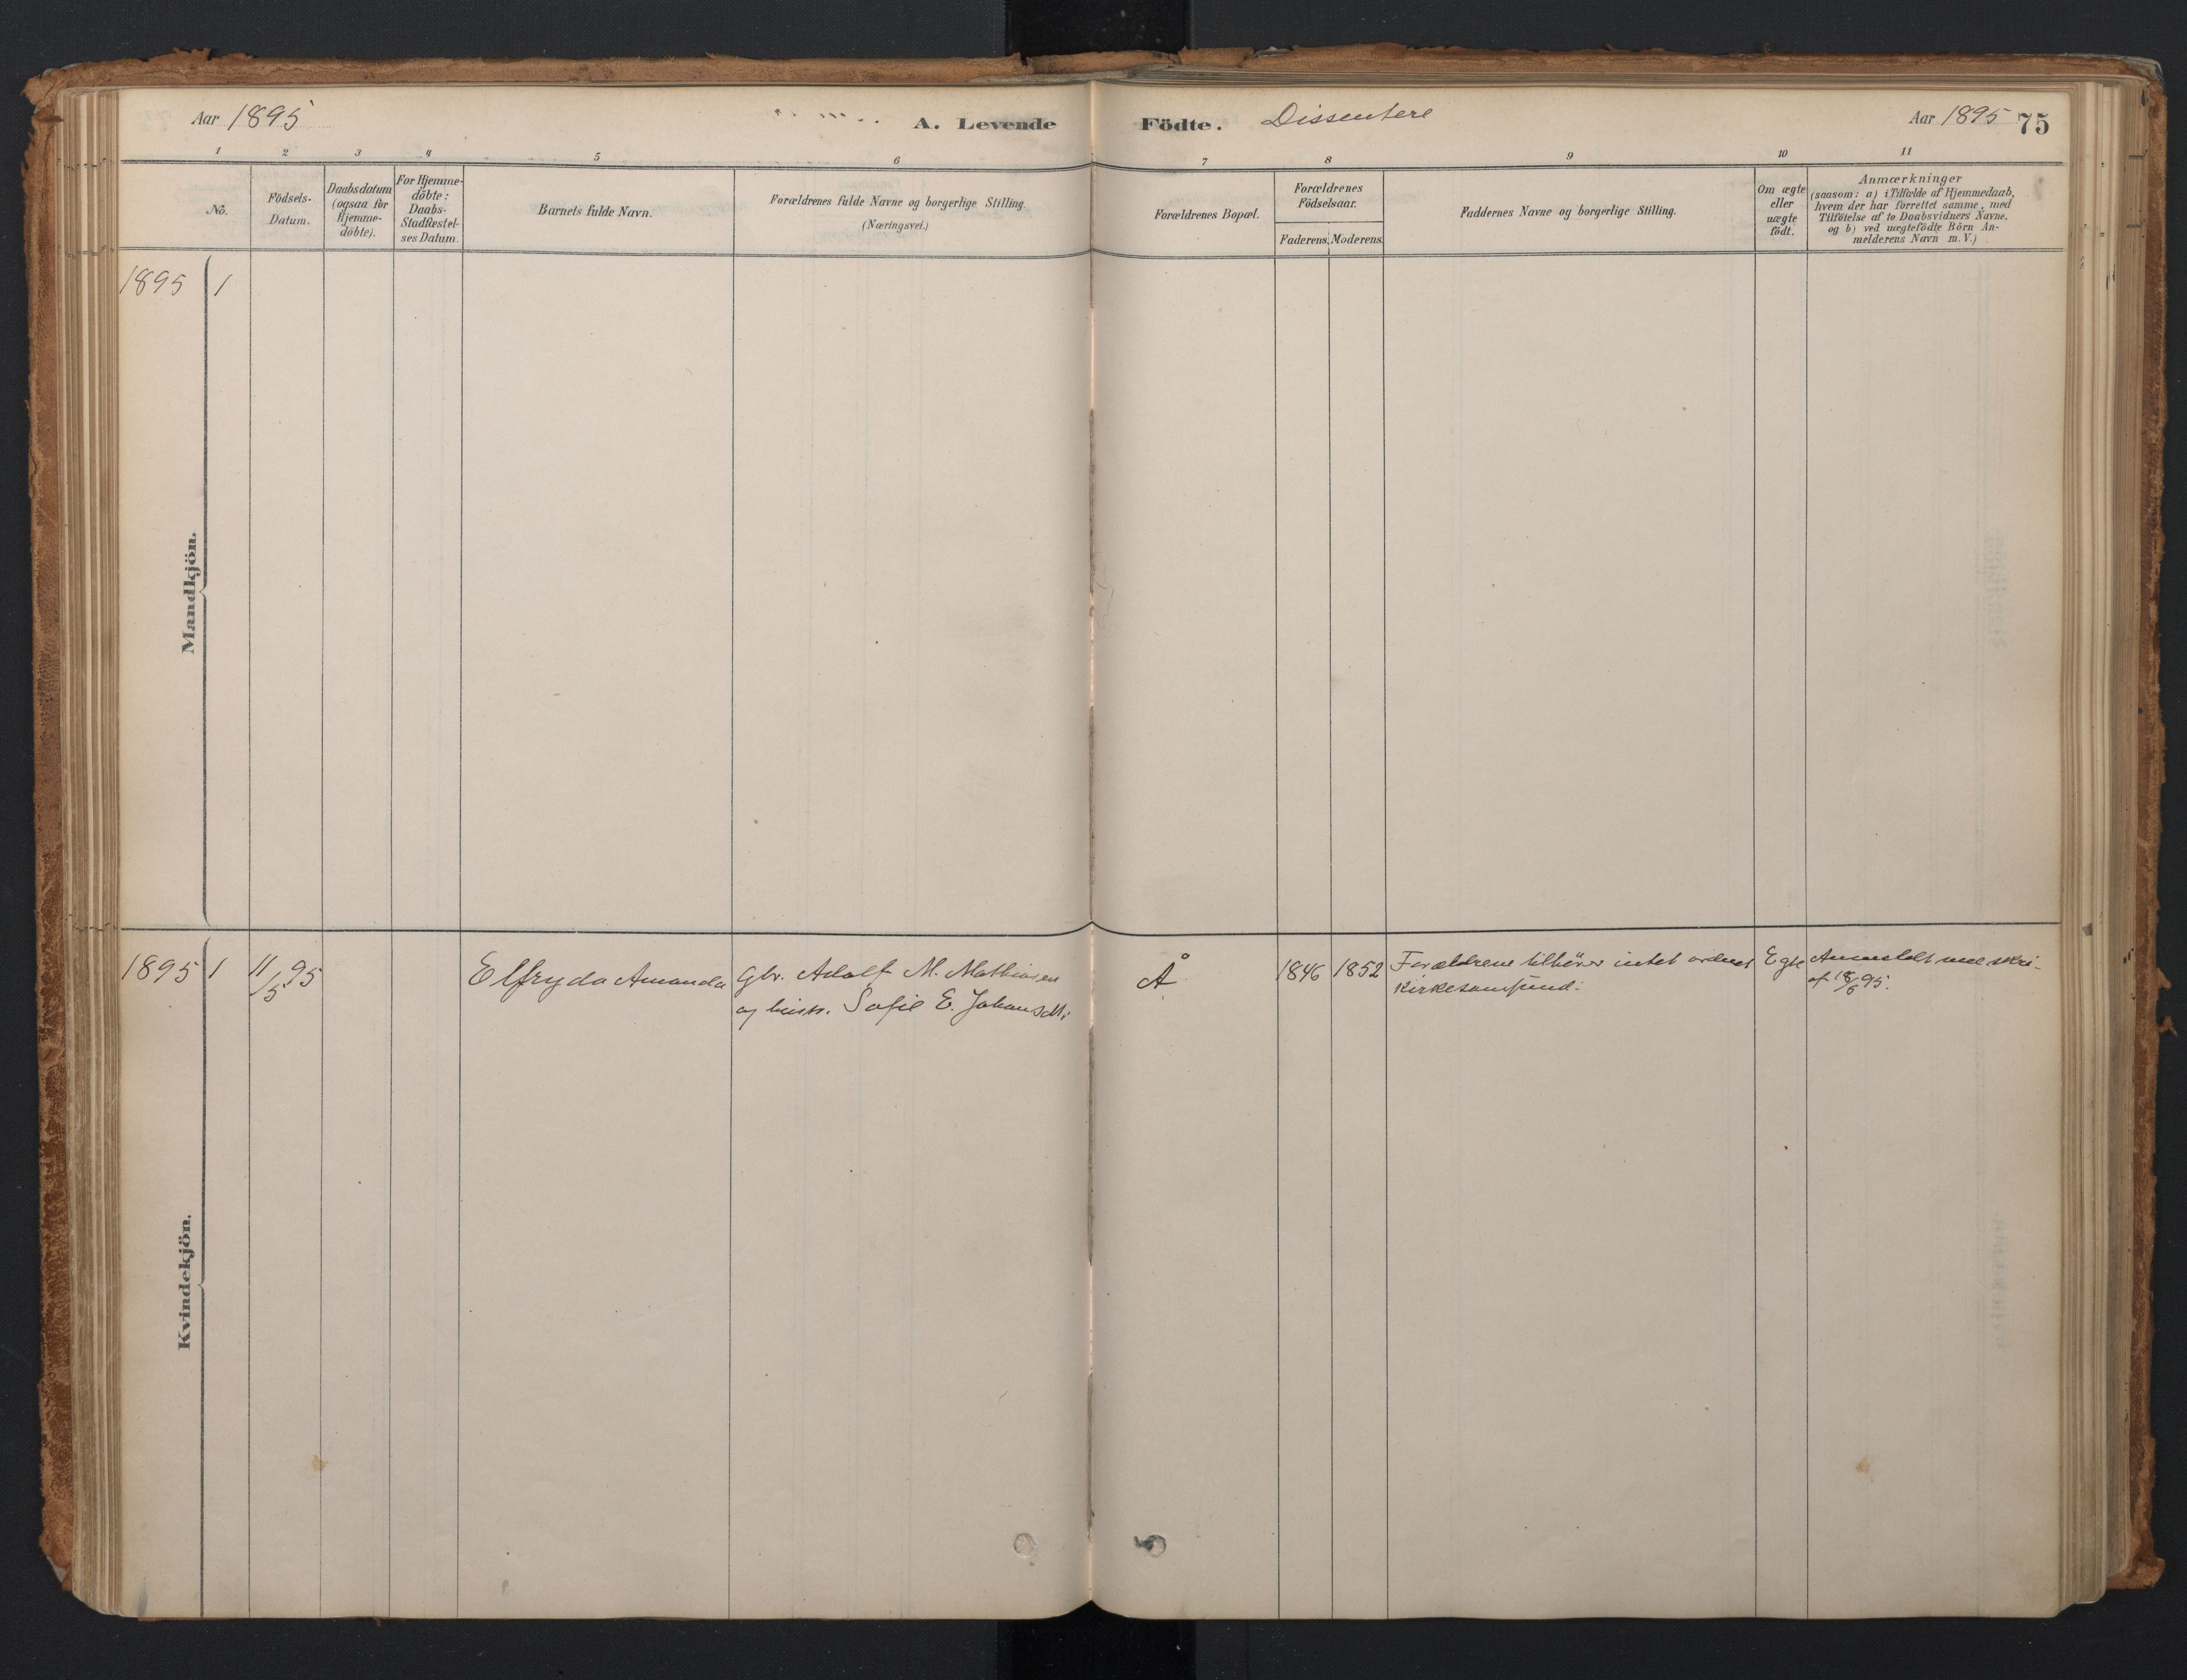 Aar 1895
A. Levende Födte. Dissentere
Aar 1895 75
1 2 3 4 5 6 7 8 9 10 11
No.
Födsels-
Datum.
Daabsdatum
(ogsaa for
Hjemme-
döbte).
For Hjemme-
döbte:
Daabs-
Stadfæstel-
ses Datum.
Barnets fulde Navn.
Forældrenes fulde Navne og borgerlige Stilling.
(Næringsvei.)
Forældrenes Bopæl.
Forældrenes
Födselsaar.
Faderens. Moderens.
Faddernes Navne og borgerlige Stilling.
Om ægte
eller
uægte
födt.
Anmærkninger
(saasom: a) i Tilfælde af Hjemmedaab,
hvem der har forrettet samme, med
Tilföielse af to Daabsvidners Navne.
og b) ved uægtefödte Börn An-
melderens Navn m. V.)
1895 1
Mandkjön.
1895 1 11/5 95 Elfryda Amanda Gbr. Adolf M. Mathiasen Å 1846 1852 Forældrene tilhører intet ordnet Egte Anmeldt
og hustr. Sofie E. Johansdtr. Kirkesamfund. af 18/6 95.
Kvindekjön.